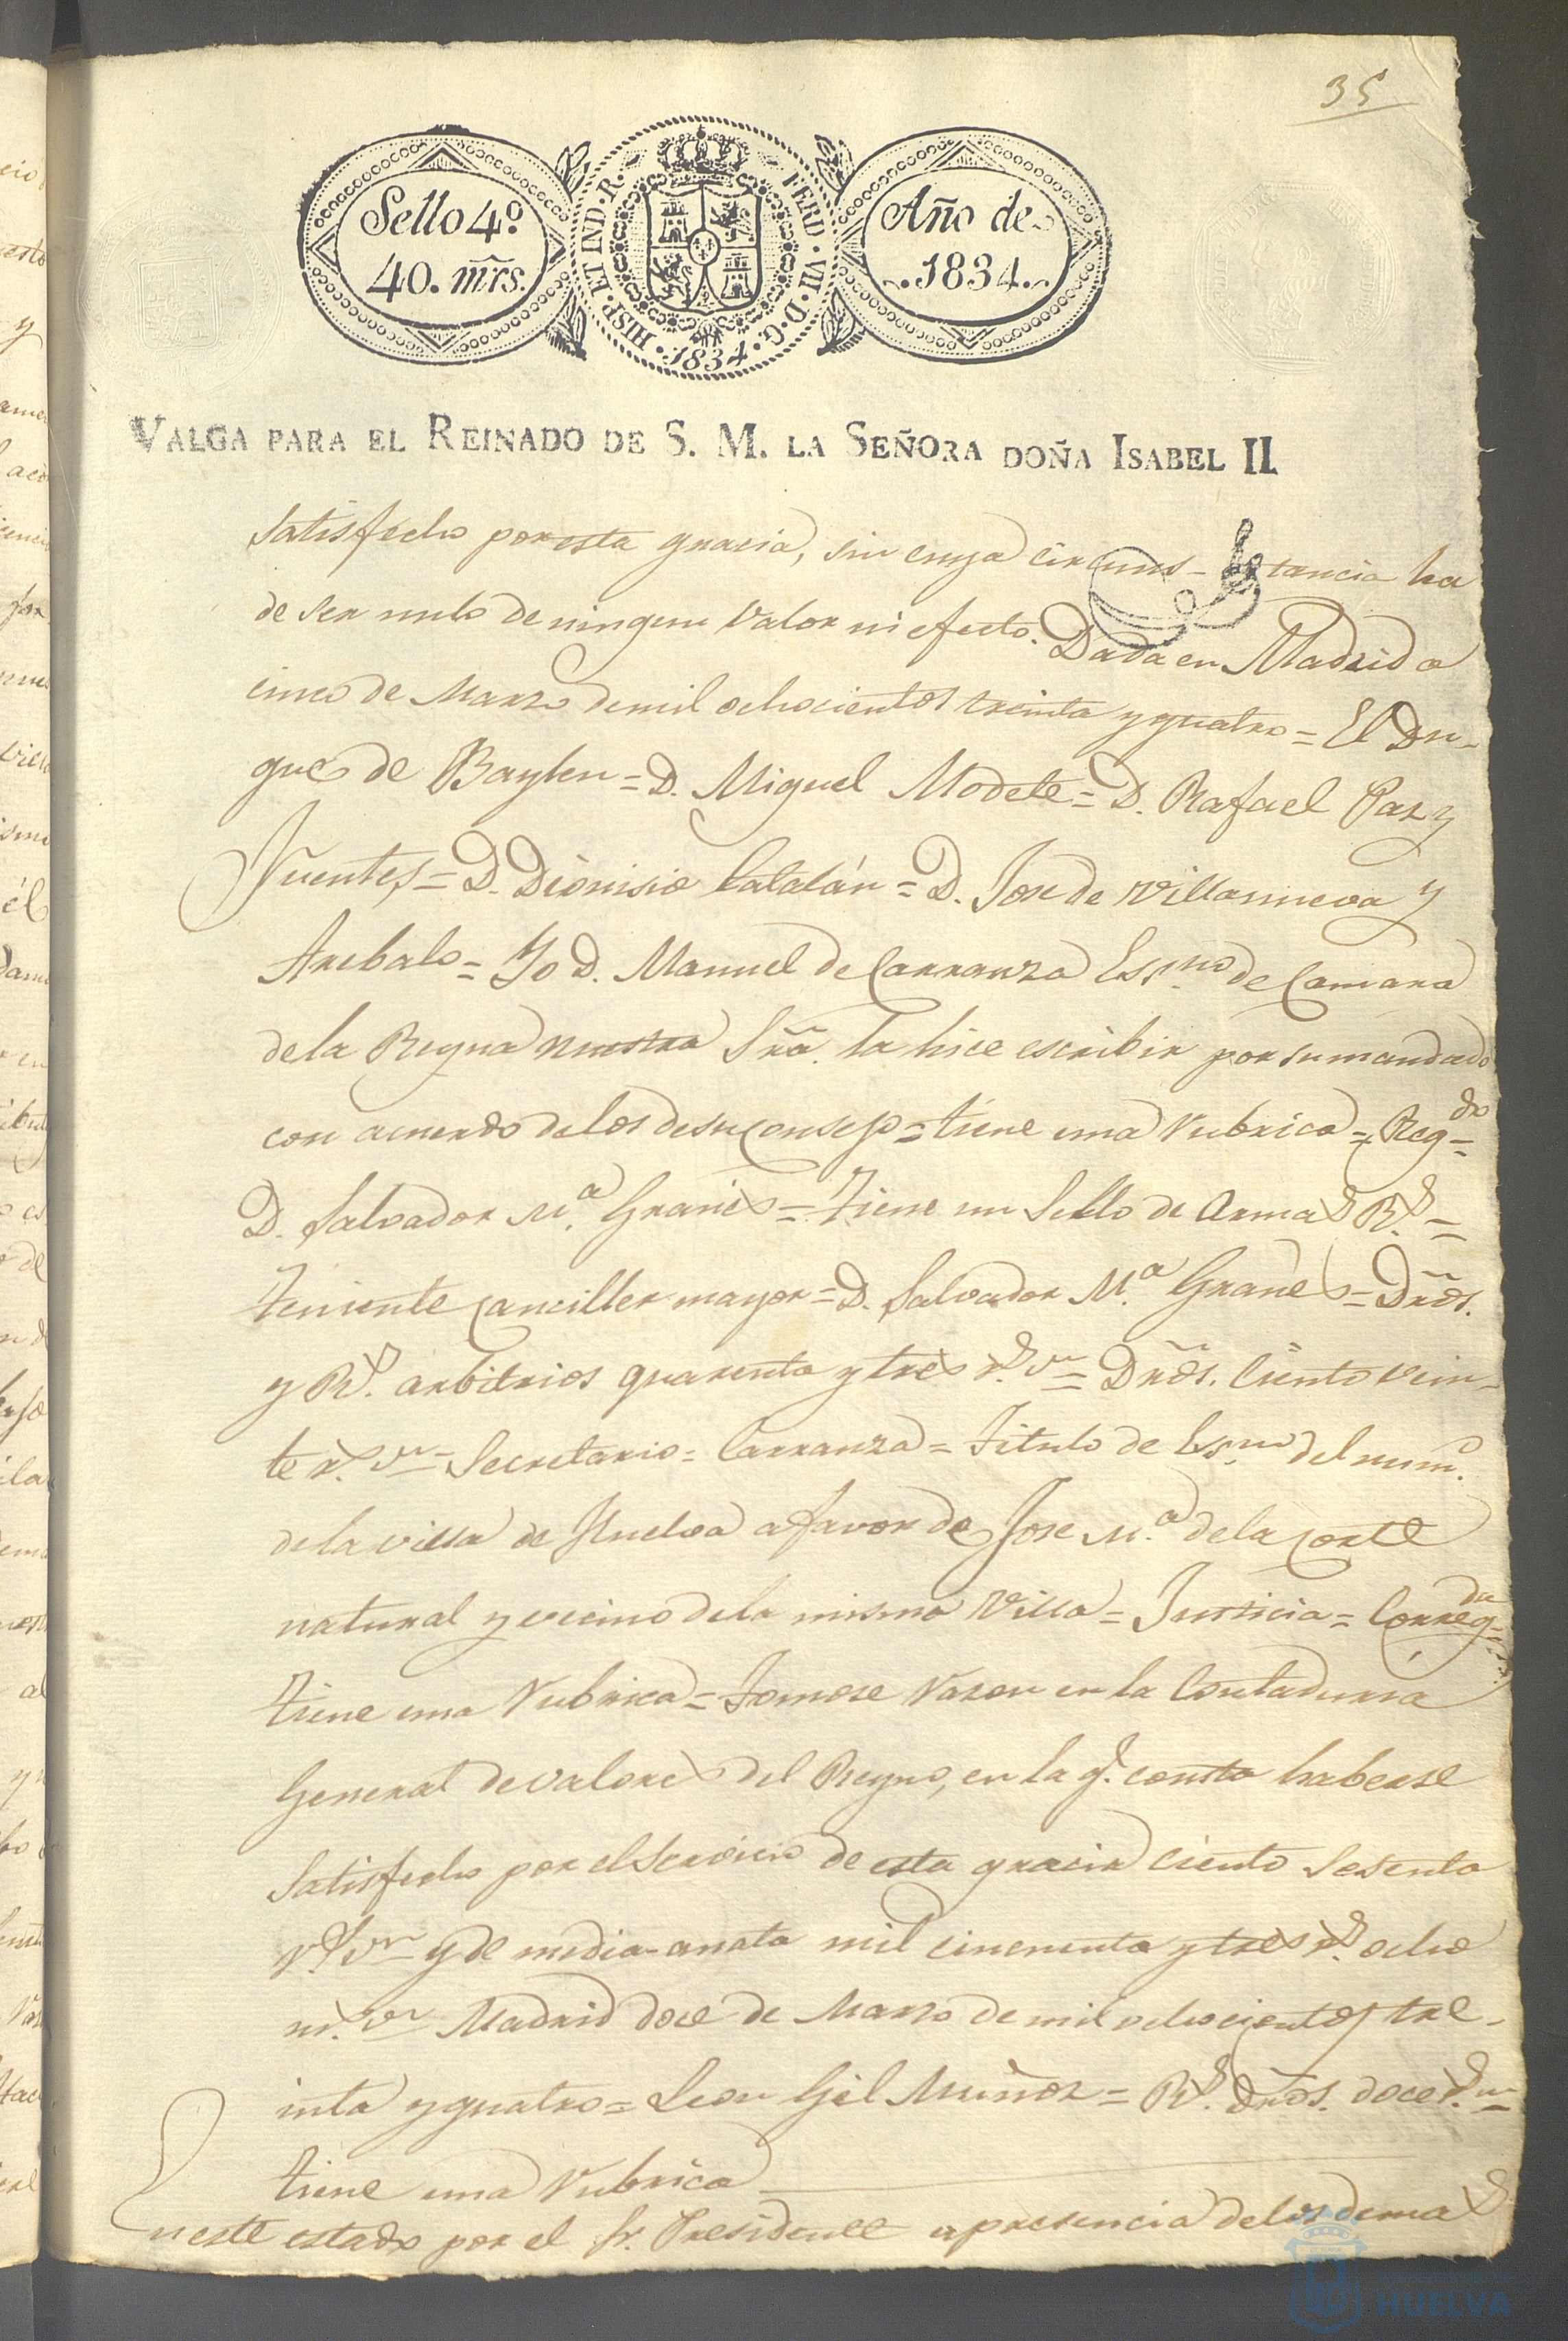 35
Sello 4.º
40. mr̃s.
HISP. ET IND. R. FERD. VII. D. G. 1834.
Año de
1834.
VALGA PARA EL REINADO DE S. M. LA SEÑORA DOÑA ISABEL II
satisfecho por esta gracia, sin cuya circuns-tancia ha
de ser nulo de ningun valor ni efecto. Dada en Madrid a
cinco de Marzo de mil ochocientos treinta y quatro = El Du-
que de Baylen = D. Miguel Modete = D. Rafael Paz y
Fuentes = D. Dionisio Catalán = D. Jose de Villanueva y
Arebalo = Yo D. Manuel de Carranza Es.no de Camara
de la Reyna nuestra Srã. la hice escribir por su mandado
con acuerdo de los de su Consejo = tiene una rubrica = Reg.do
D. Salvador M.a Granés = Tiene un Sello de Armas R.s =
Teniente Canciller mayor = D. Salvador M.a Granés = Dr̃os.
y R.s arbitrios quarenta y tres r.s vn = Dr̃os. Ciento vein-
te r.s vn = Secretario = Carranza = Titulo de Es.no del num.o
de la villa de Huelva a favor de Jose M.a de la Corte
natural y vecino de la misma Villa = Justicia = Correg.da
tiene una rubrica = Tomose razon en la Contaduria
General de valores del Reyno, en la q.e consta haberse
satisfecho por el servicio de esta gracia ciento sesenta
r.s vn y de media-anata mil cincuenta y tres r.s ocho
m.s vn Madrid doce de Marzo de mil ochocientos tre-
inta y quatro = Leon Gil Muñoz = R.s dr̃os. doce r.s vn =
tiene una rubrica
n este estado por el Sr. Presidente a presencia de los demas
HUELVA